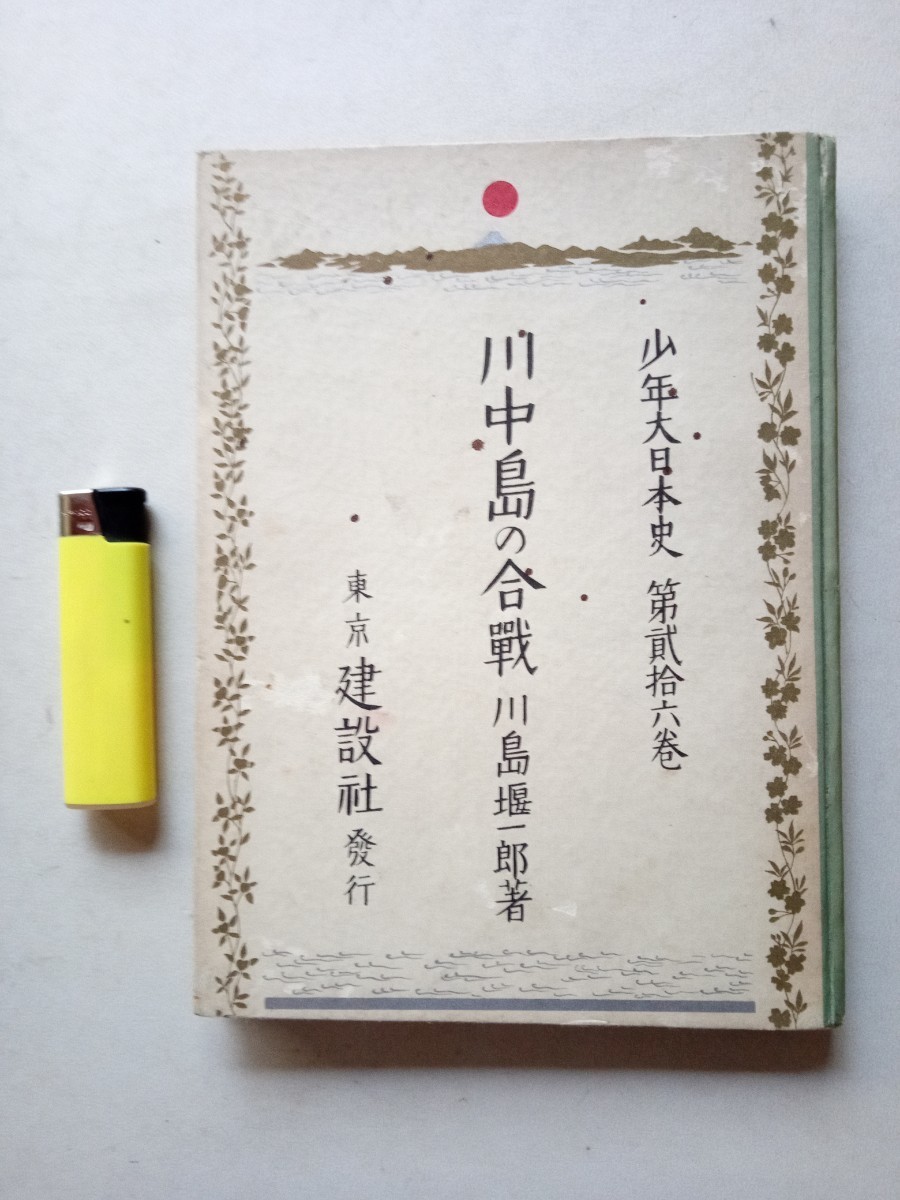 少年大日本史 第貳拾六巻
川中島の合戰 川島堰一郎著
東京 建設社 發行